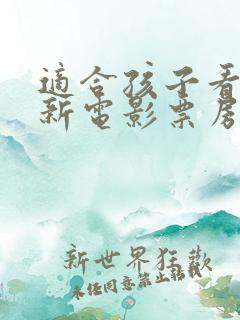 適合孩子看
新電影票房
新世界狂歡
未经同意禁止转载